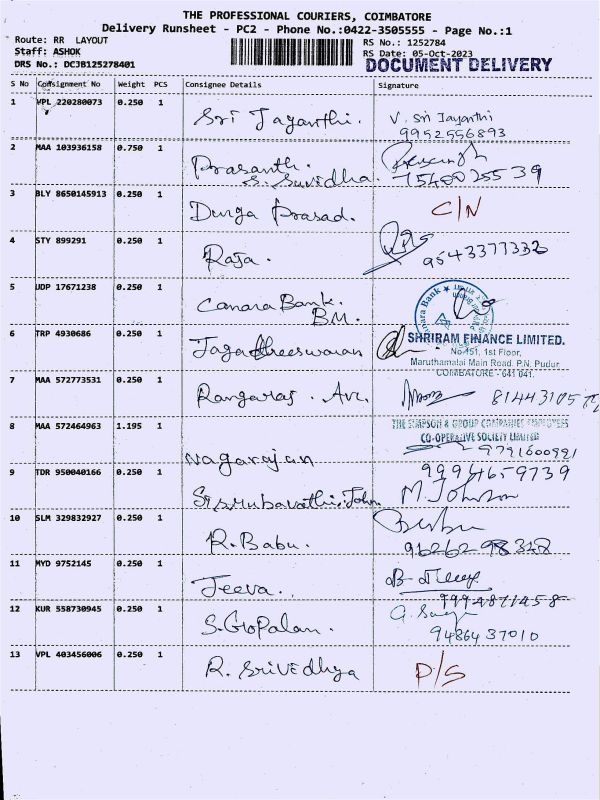 THE PROFESSIONAL COURIERS, COIMBATORE
Delivery Runsheet - PC2 - Phone No.:0422-3505555 - Page No.:1
Route: RR LAYOUT
RS No.: 1252784
Staff: ASHOK
RS Date: 05-Oct-2023
DRS No.: DCJB125278401
DOCUMENT DELIVERY
S No Consignment No Weight PCS Consignee Details Signature
1 VPL 220280073 0.250 1 Sri Jayanthi. V. Sri Jayanthi
9952556893
2 MAA 103936158 0.750 1 Prasanth.
S. Suvidha.
3 BLY 8650145913 0.250 1 Durga Prasad. C/N
4 STY 899291 0.250 1 Raja. 9543377332
5 UDP 17671238 0.250 1 Canara Bank.
B.M.
6 TRP 4930686 0.250 1 Jagadheeswaran SHRIRAM FINANCE LIMITED.
No.151, 1st Floor,
Maruthamalai Main Road, P.N. Pudur
COIMBATORE - 641 041.
7 MAA 572773531 0.250 1 Rangaraj. 81443105
8 MAA 572464963 1.195 1 Nagarajan THE SIMPSON & GROUP COMPANIES EMPLOYEES
CO-OPERATIVE SOCIETY LIMITED
9791600991
9 TDR 950040166 0.250 1 John. 9994659739
M. Johnson
10 SLM 329832927 0.250 1 R. Babu. Babu
9626298328
11 MYD 9752145 0.250 1 Jeeva.
9994871458
12 KUR 558730945 0.250 1 S. Gopalan.
9486437010
13 VPL 403456006 0.250 1 R. Srividhya D/S